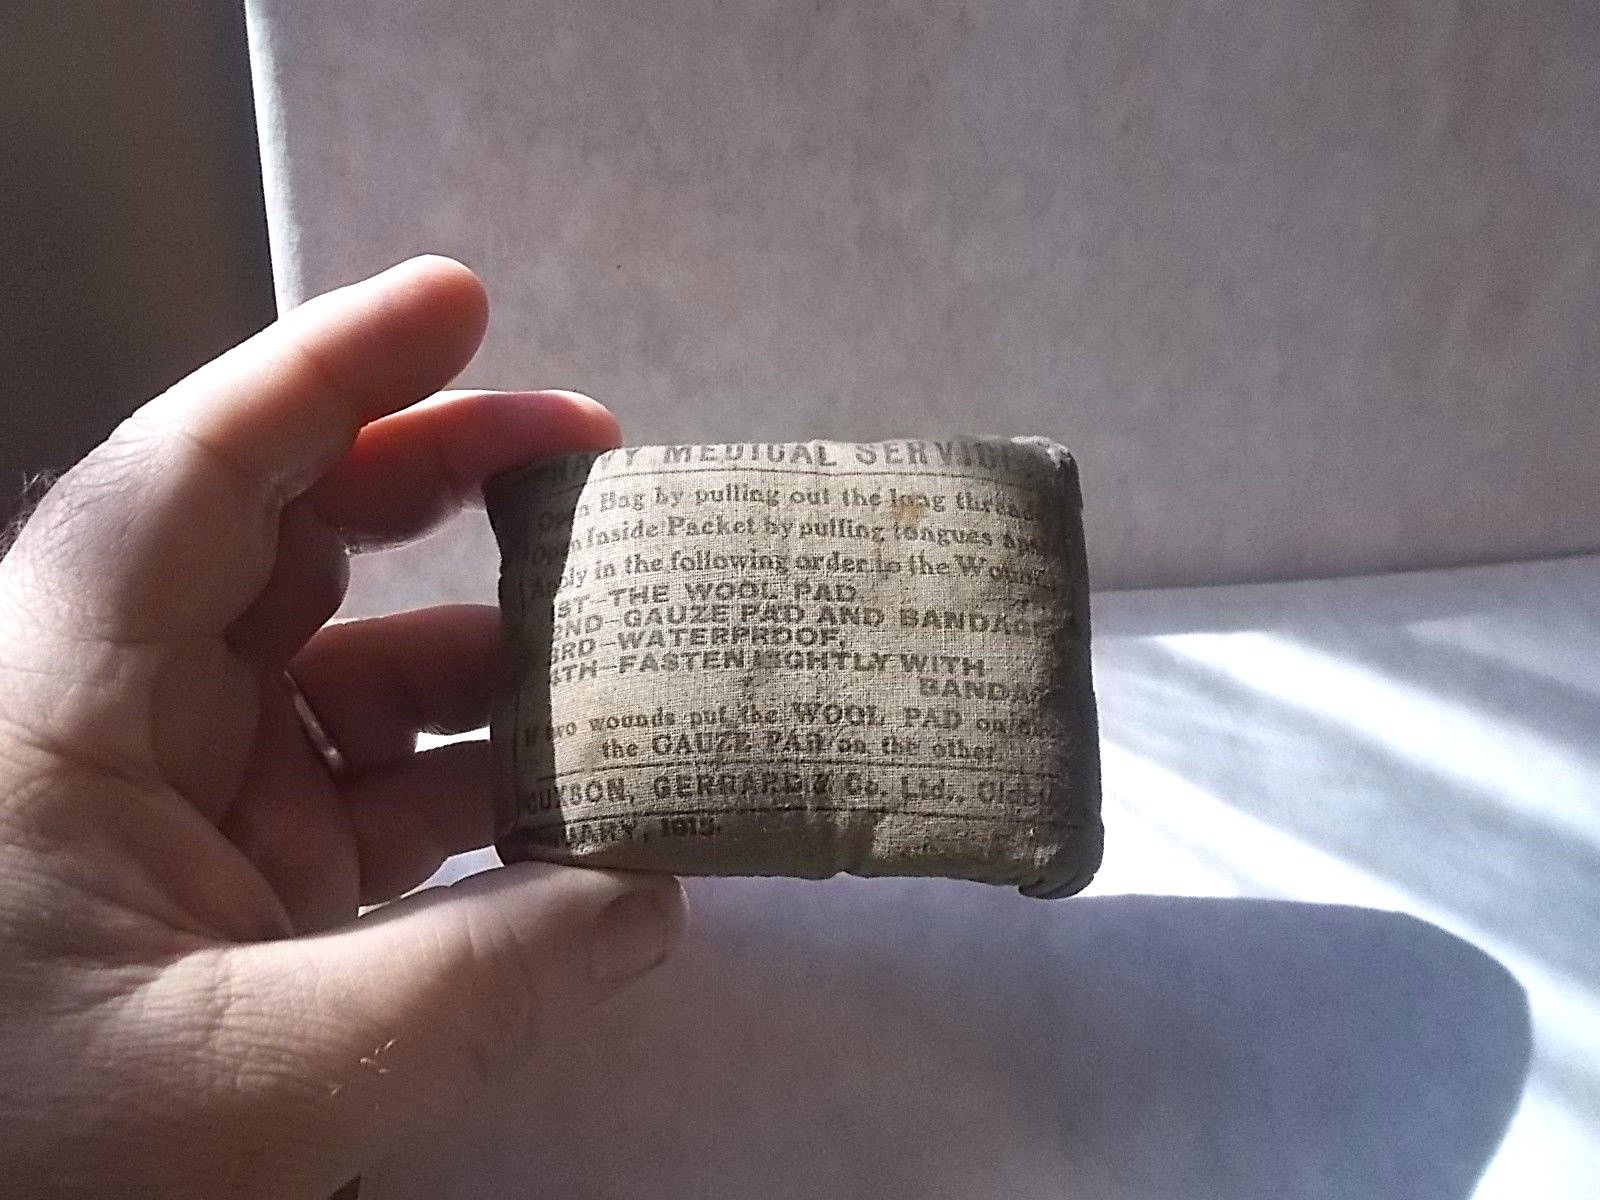 NAVY MEDICAL SERVICE
Open Bag by pulling out the long thread
Open Inside Packet by pulling tongues
Apply in the following order to the Wound
1ST-THE WOOL PAD.
2ND-GAUZE PAD AND BANDAGE
3RD-WATERPROOF.
4TH-FASTEN LIGHTLY WITH
BANDAGE
If two wounds put the WOOL PAD on
the GAUZE PAD on the other
CUXSON, GERRARD & Co. Ltd.,
1915.